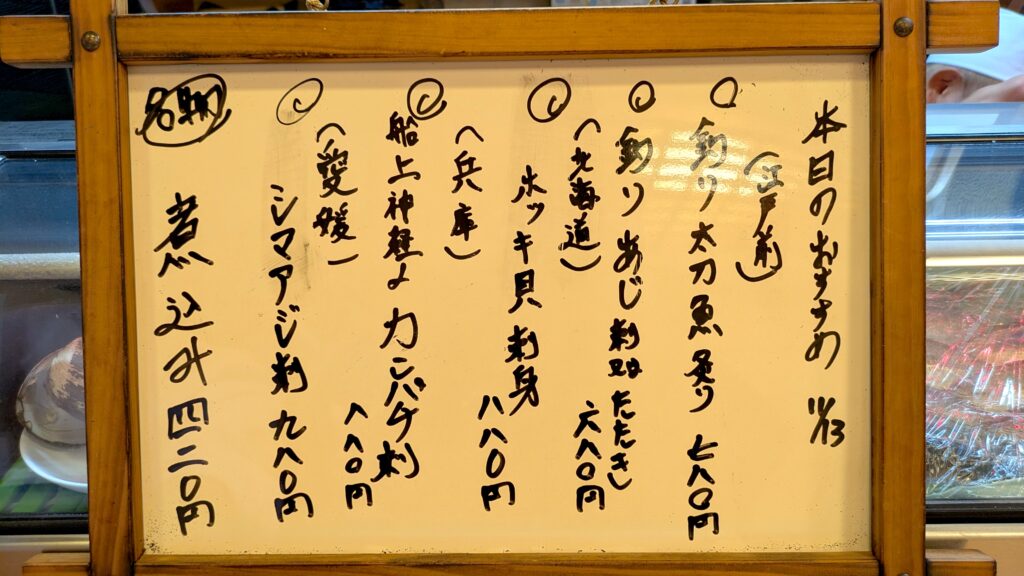 本日のおすすめ 11/13
(江戸前)
釣り太刀魚炙り 七八〇円
釣りあじ刺 or たたき 六八〇円
(北海道)
ホッキ貝刺身 八八〇円
(兵庫)
船上神経〆カンパチ刺 八八〇円
(愛媛)
シマアジ刺 九八〇円
名物 煮込み 四二〇円